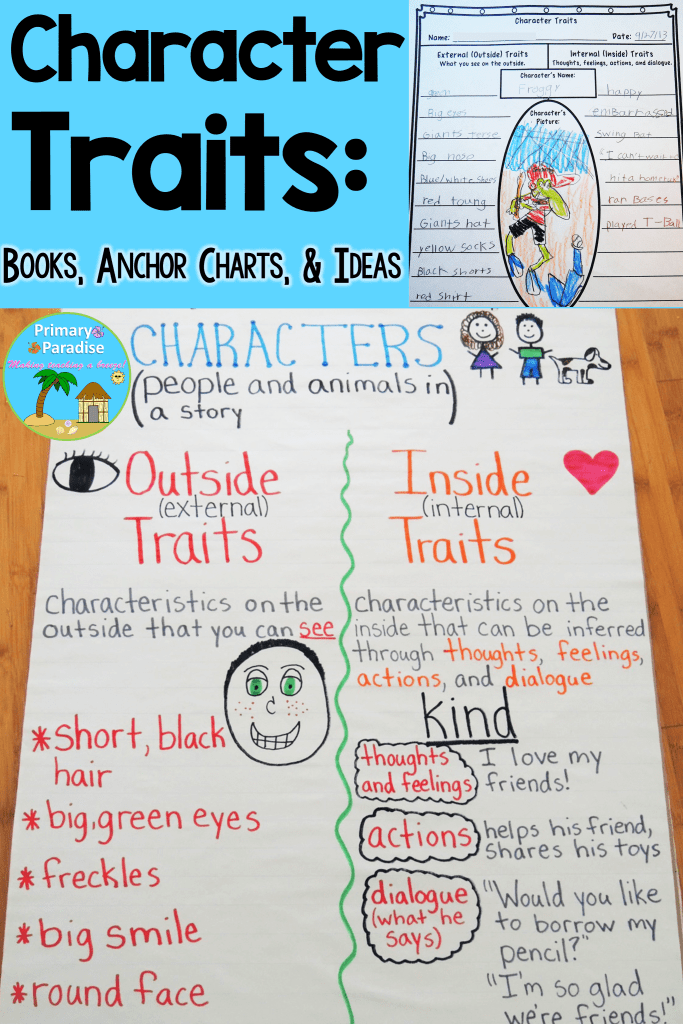 Character
Traits:
BOOKS, ANCHOR CHARTS, & IDEAS
Character Traits
Name: Date: 9/27/13
External (Outside) Traits
What you see on the outside.
Internal (Inside) Traits
Thoughts, feelings, actions, and dialogue.
Character's Name:
Froggy
Character's
Picture:
Big eyes
Giants
Big noso
Blue/white shoes
red toung
Giants hat
yellow socks
Black shorts
red shirt
happy
embarbassed
swing bat
"I can't
hit a
ran Bases
played T-Ball
Primary
Paradise
CHARACTERS
(people and animals in
a story)
Outside
(external)
Traits
Characteristics on the
outside that you can see
*short, black
hair
*big, green eyes
*freckles
*big smile
*round face
Inside
(internal)
Traits
Characteristics on the
inside that can be inferred
through thoughts, feelings,
actions, and dialogue
kind
thoughts
and feelings
I love my
friends!
actions
helps his friend,
shares his toys
dialogue
(what he
says)
"Would you like
to borrow my
pencil?"
"I'm so glad
we're friends!"